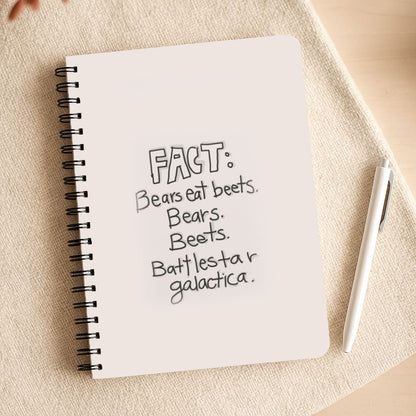 FACT:
Bears eat beets.
Bears.
Beets.
Battlestar
galactica.